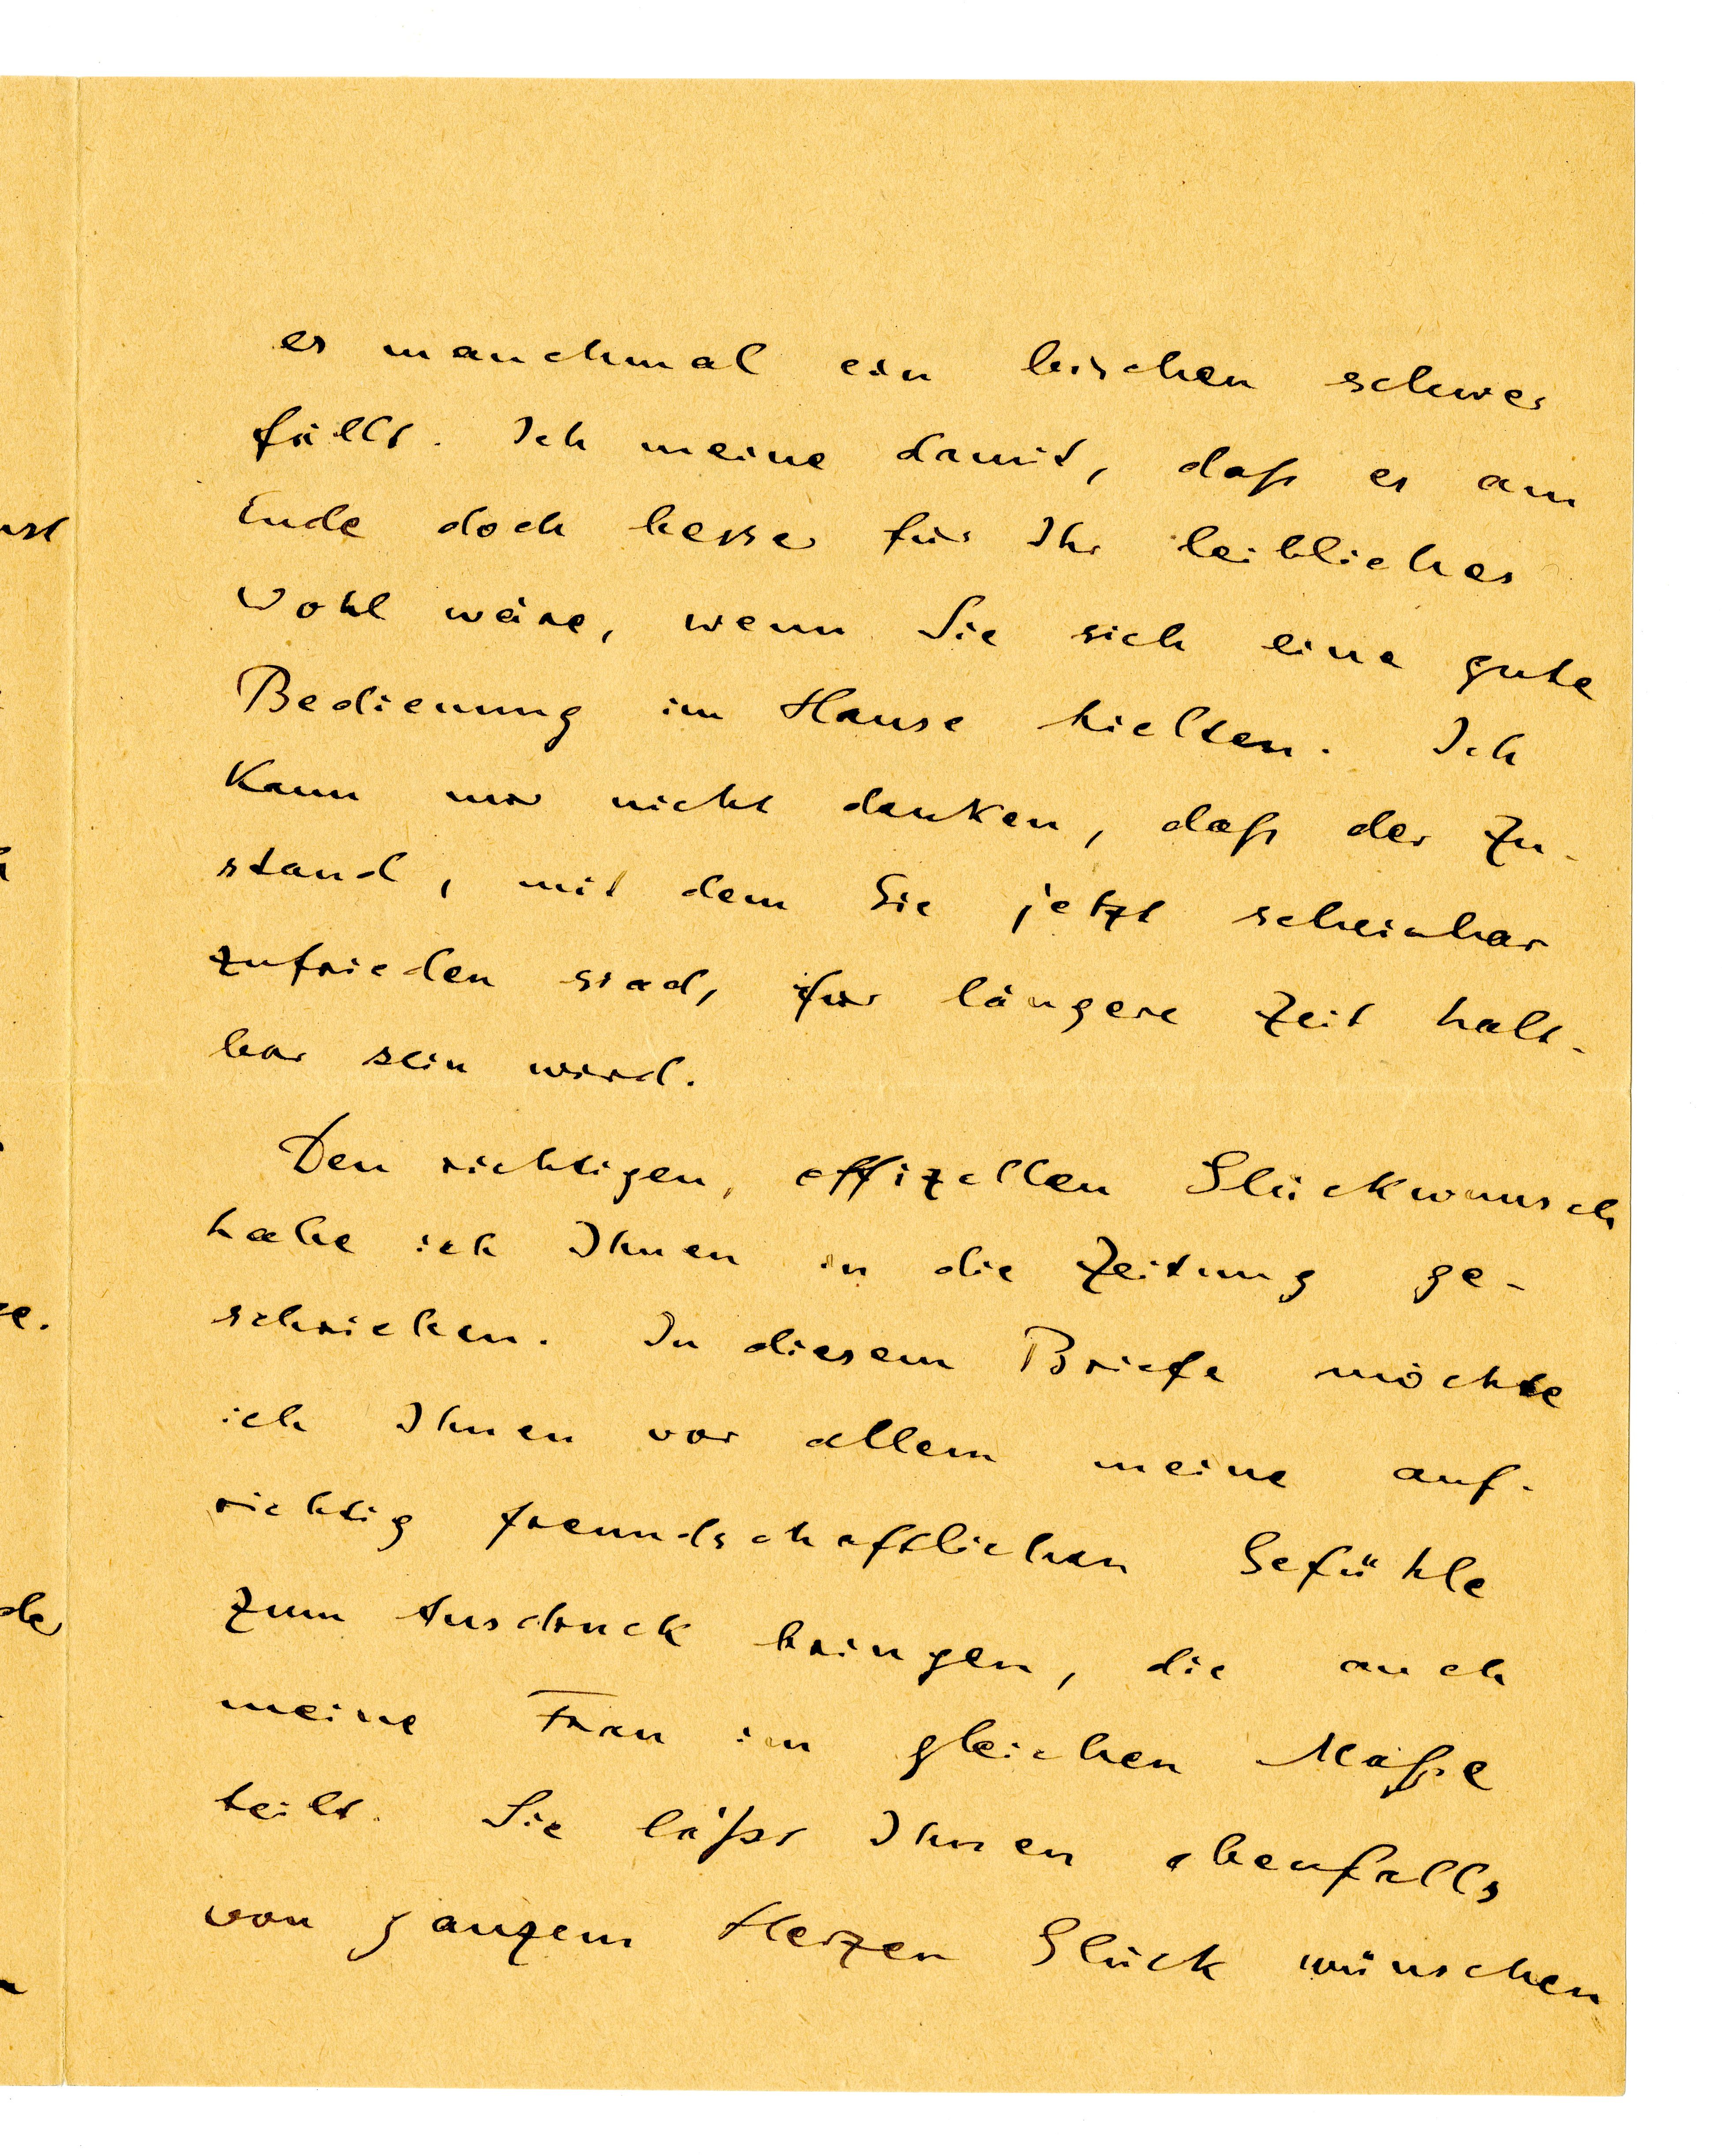 es manchmal ein bischen schwer
fällt. Ich meine damit, daß es am
Ende doch besser für Ihr leibliches
Wohl wäre, wenn Sie sich eine gute
Bedienung im Hause hielten. Ich
kann mir nicht denken, daß der Zu-
stand, mit dem Sie jetzt scheinbar
zufrieden sind, für längere Zeit halt-
bar sein wird.
Den richtigen, offizellen Glückwunsch
habe ich Ihnen in die Zeitung ge-
schrieben. In diesem Briefe möchte
ich Ihnen vor allem meine auf-
richtig freundschaftlichen Gefühle
zum Ausdruck bringen, die auch
meine Frau im gleichen Maße
teilt. Sie läßt Ihnen ebenfalls
von ganzem Herzen Glück wünschen